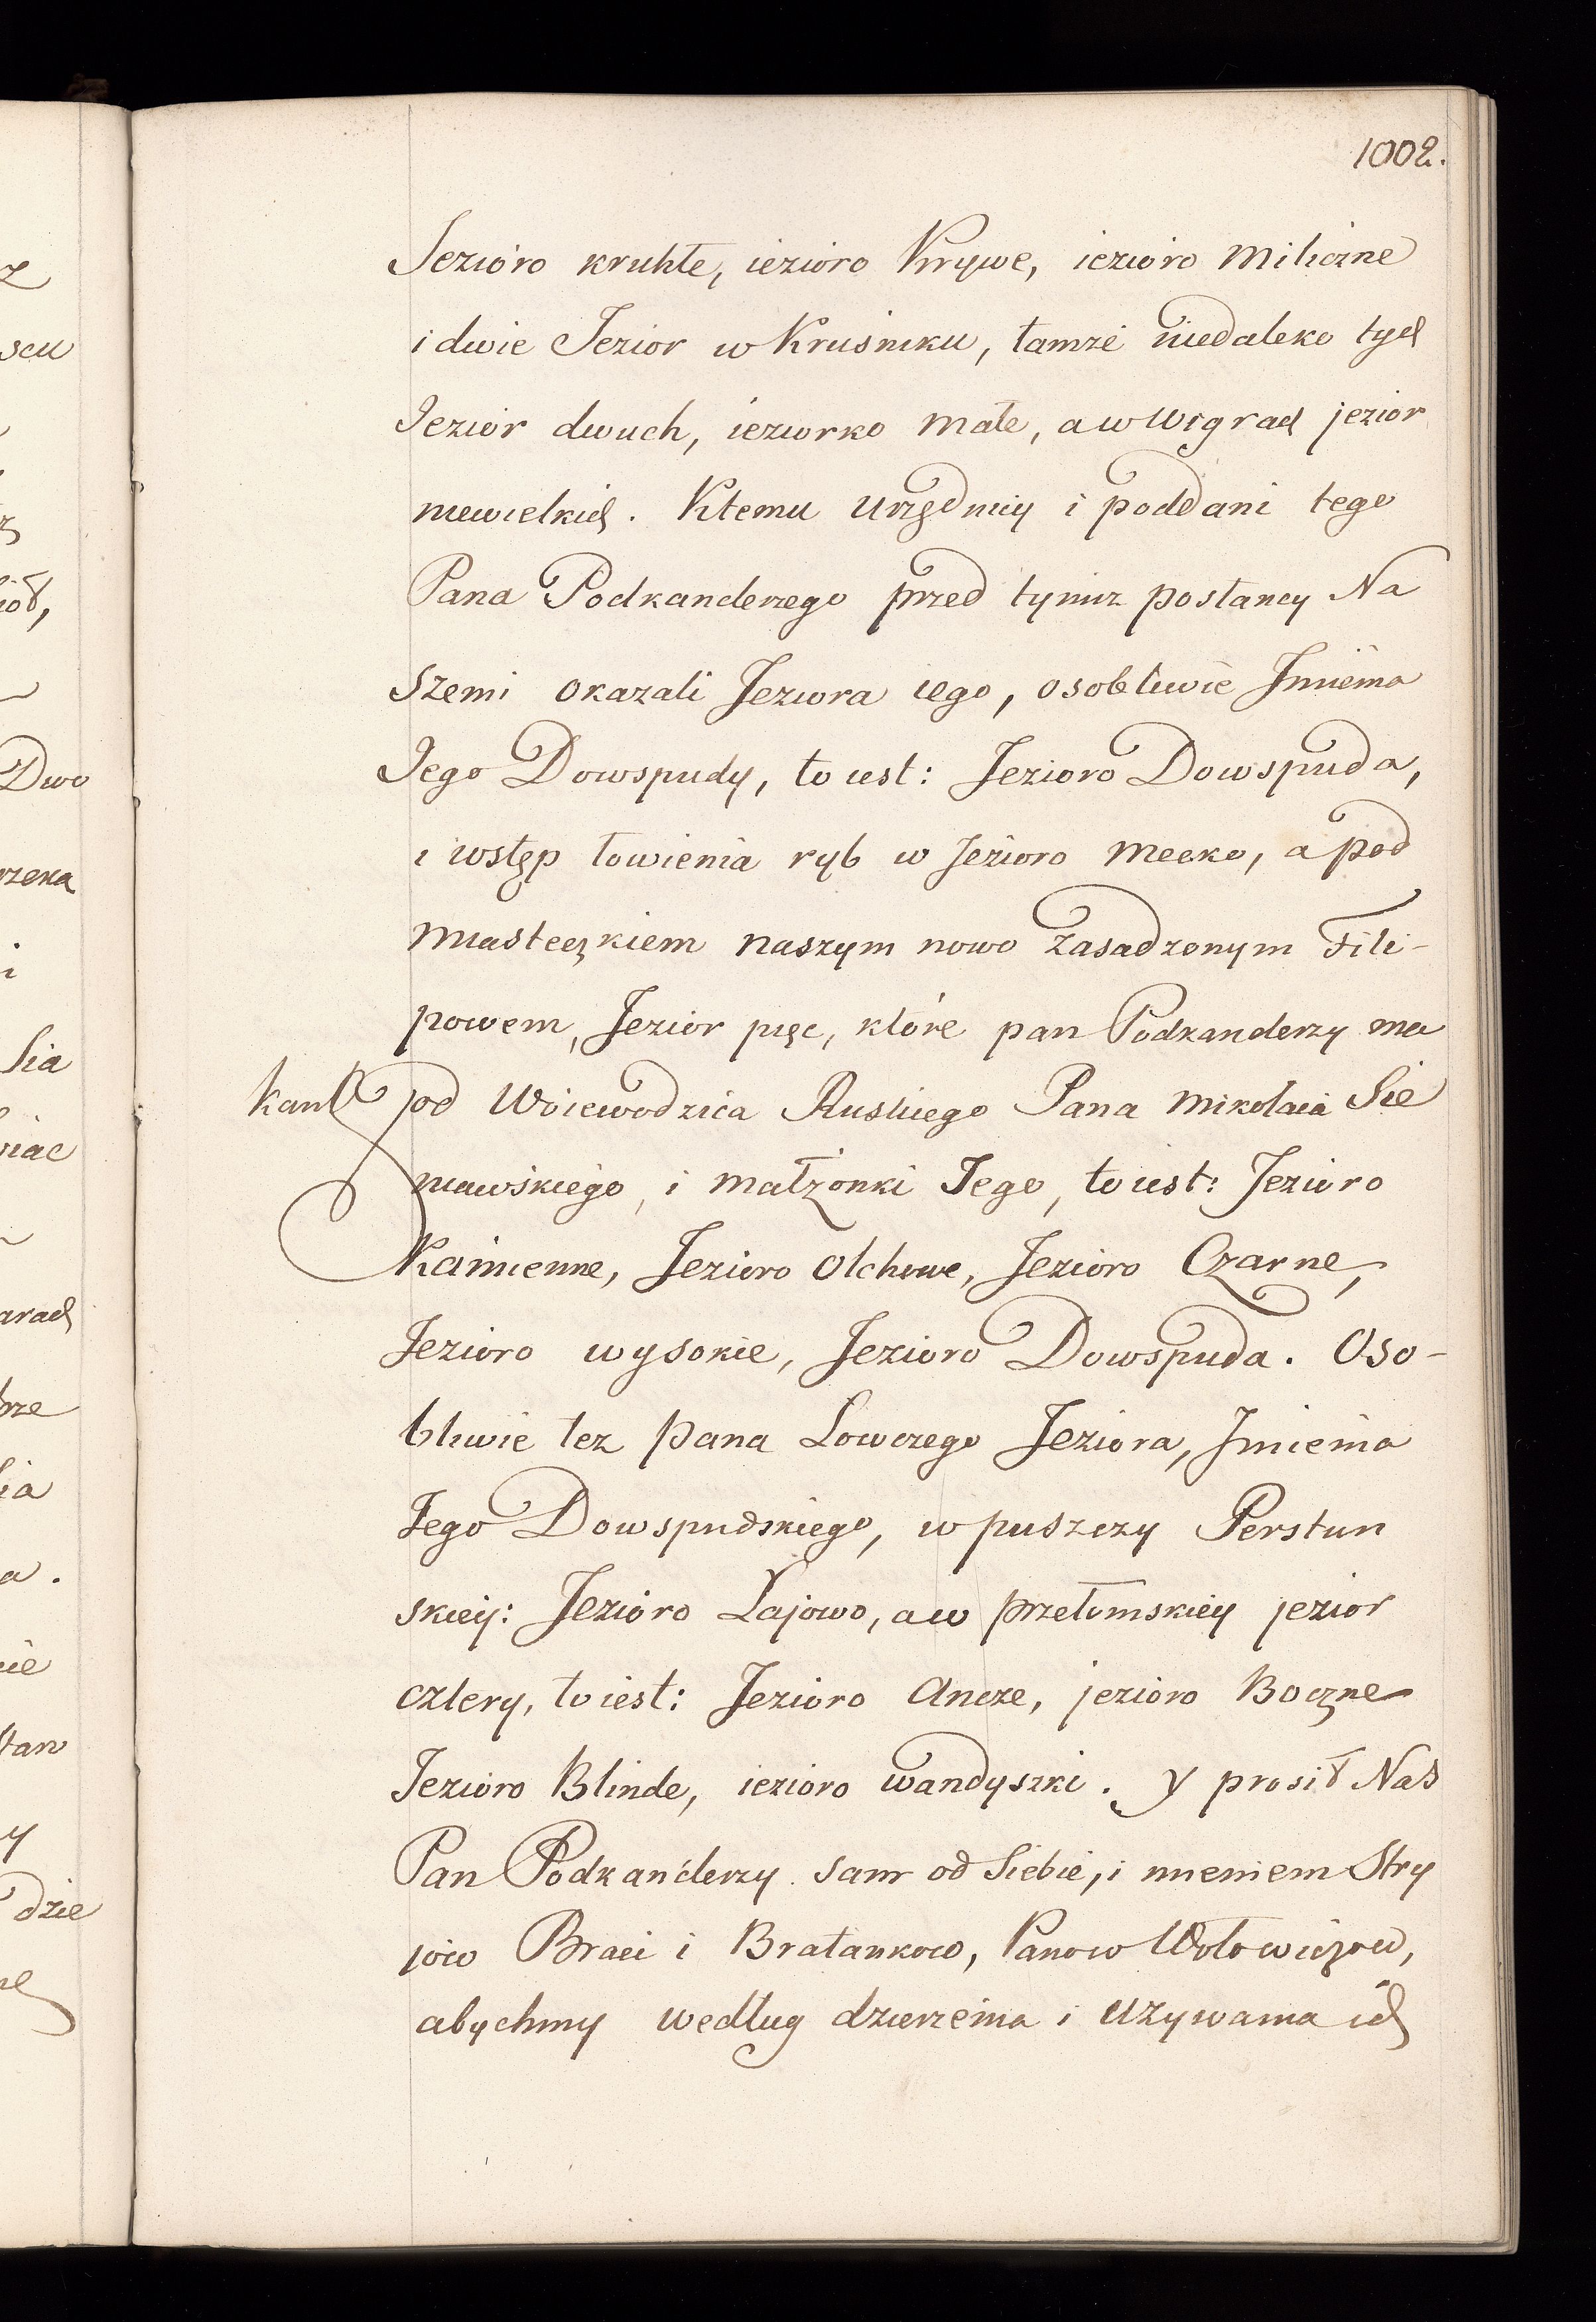 1002.
Jezioro kruhłe, iezioro Krzywe, iezioro Miliczne
i dwie Jezior w Kruśniku, tamże niedaleko tych
Jezior dwuch, ieziorko małe, a w Wigrach jezior
niewielkich. Ktemu urzędnicy i poddani tego
Pana Podkanclerzego przed tymiż posłańcy Na
szemi okazali Jeziora iego, osobliwie Jmienia
Jego Dowspudy, to iest: Jezioro Dowspuda,
i wstęp łowienia ryb w Jezioro Meeko, a pod
miasteczkiem naszym nowo zasadzonym Fili-
powem, Jezior pięc, które pan Podkanclerzy ma
od Woiewodzica Ruskiego Pana Mikołaia Sie
niawskiego, i małżonki Jego, to iest: Jezioro
Kamienne, Jezioro Olchowe, Jezioro Czarne,
Jezioro wysokie, Jezioro Dowspuda. Oso-
bliwie tez pana Łowczego Jeziora, Jmienia
Jego Dowspudskiego, w puszczy Perstun
skiey: Jezioro Łajowo, a w przełomskiey jezior
cztery, to iest: Jezioro Ancze, jezioro Boczne
Jezioro Blinde, iezioro wandyszki. Y prosił Nas
Pan Podkanclerzy sam od Siebie, i imieniem Stry
jów Braci i Bratanków, Panow Wołowiczow,
abychmy według dzierzenia i używania ich